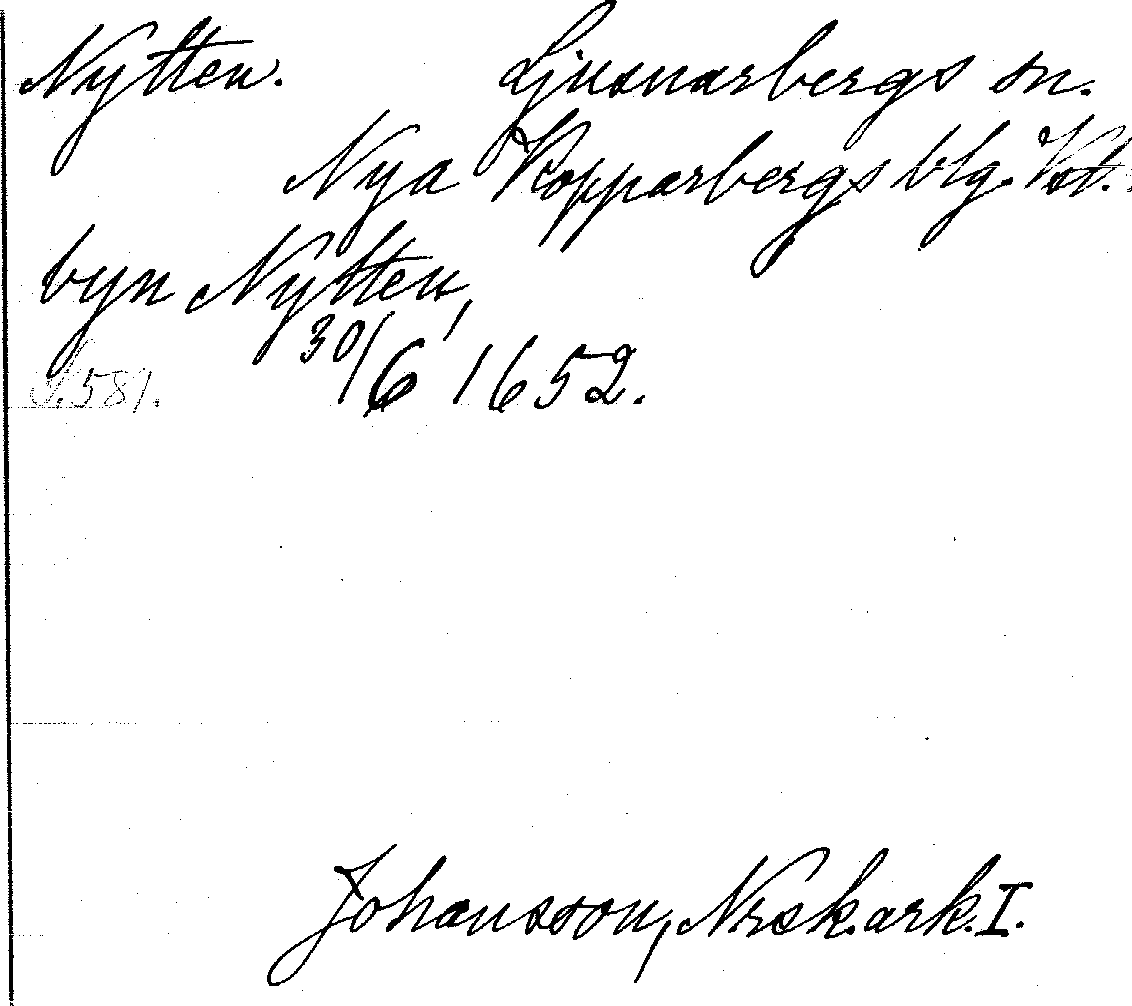 Nytten. Ljusnarbergs sn.
Nya Kopparbergs blg. Vstm.
byn Nytten,
30/6 1652.
S. 581.
Johansson, Nrsk. ark. I.